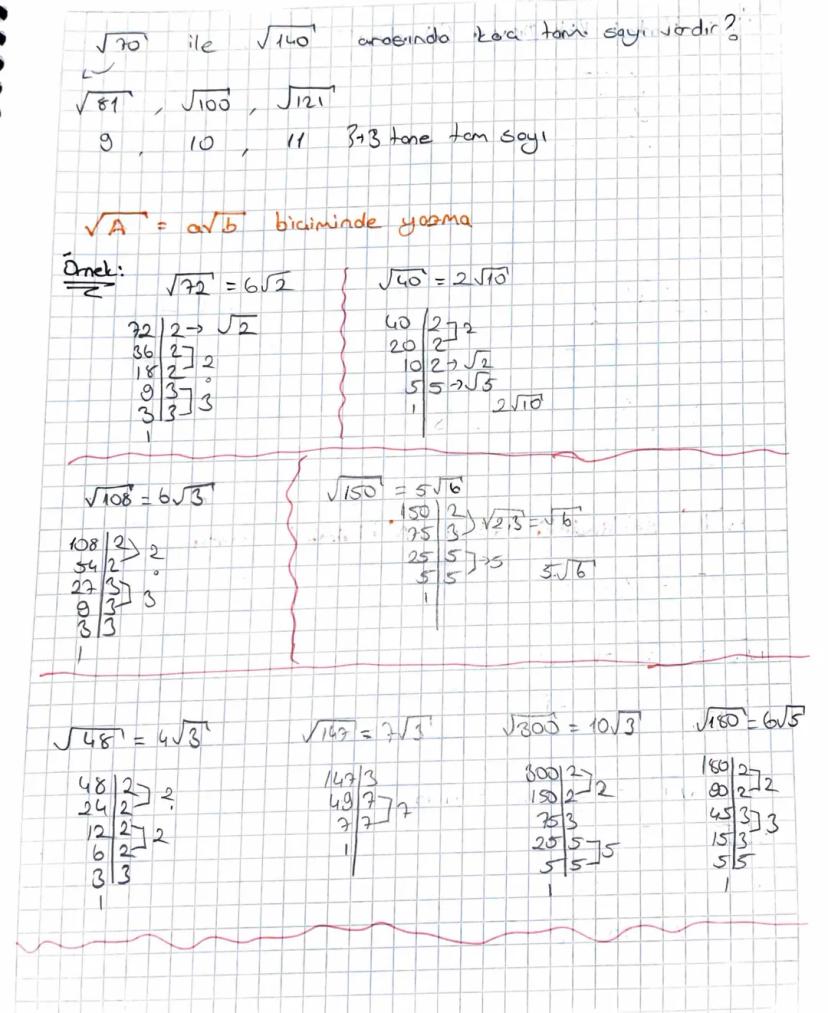 √70 ile √140 arasında kaç tam sayı vardır?
√81 , √100 , √121
9 , 10 , 11 3 tane tam sayı
√A = a√b biçiminde yazma
Örnek:
√72 = 6√2
72 | 2 → √2
36 | 2
18 | 2 2
9 | 3
3 | 3 3
1
√40 = 2√10
40 | 2 2
20 | 2
10 | 2 → √2
5 | 5 → √5
1 2√10
√108 = 6√3
108 | 2 2
54 | 2
27 | 3 3
9 | 3
3 | 3
1
√150 = 5√6
150 | 2 √2.3 = √6
75 | 3
25 | 5 → 5
5 | 5 5√6
1
√48 = 4√3
48 | 2 2
24 | 2
12 | 2 2
6 | 2
3 | 3
1
√147 = 7√3
147 | 3
49 | 7 7
7 | 7
1
√300 = 10√3
300 | 2 2
150 | 2
75 | 3
25 | 5 5
5 | 5
1
√180 = 6√5
180 | 2 2
90 | 2
45 | 3 3
15 | 3
5 | 5
1